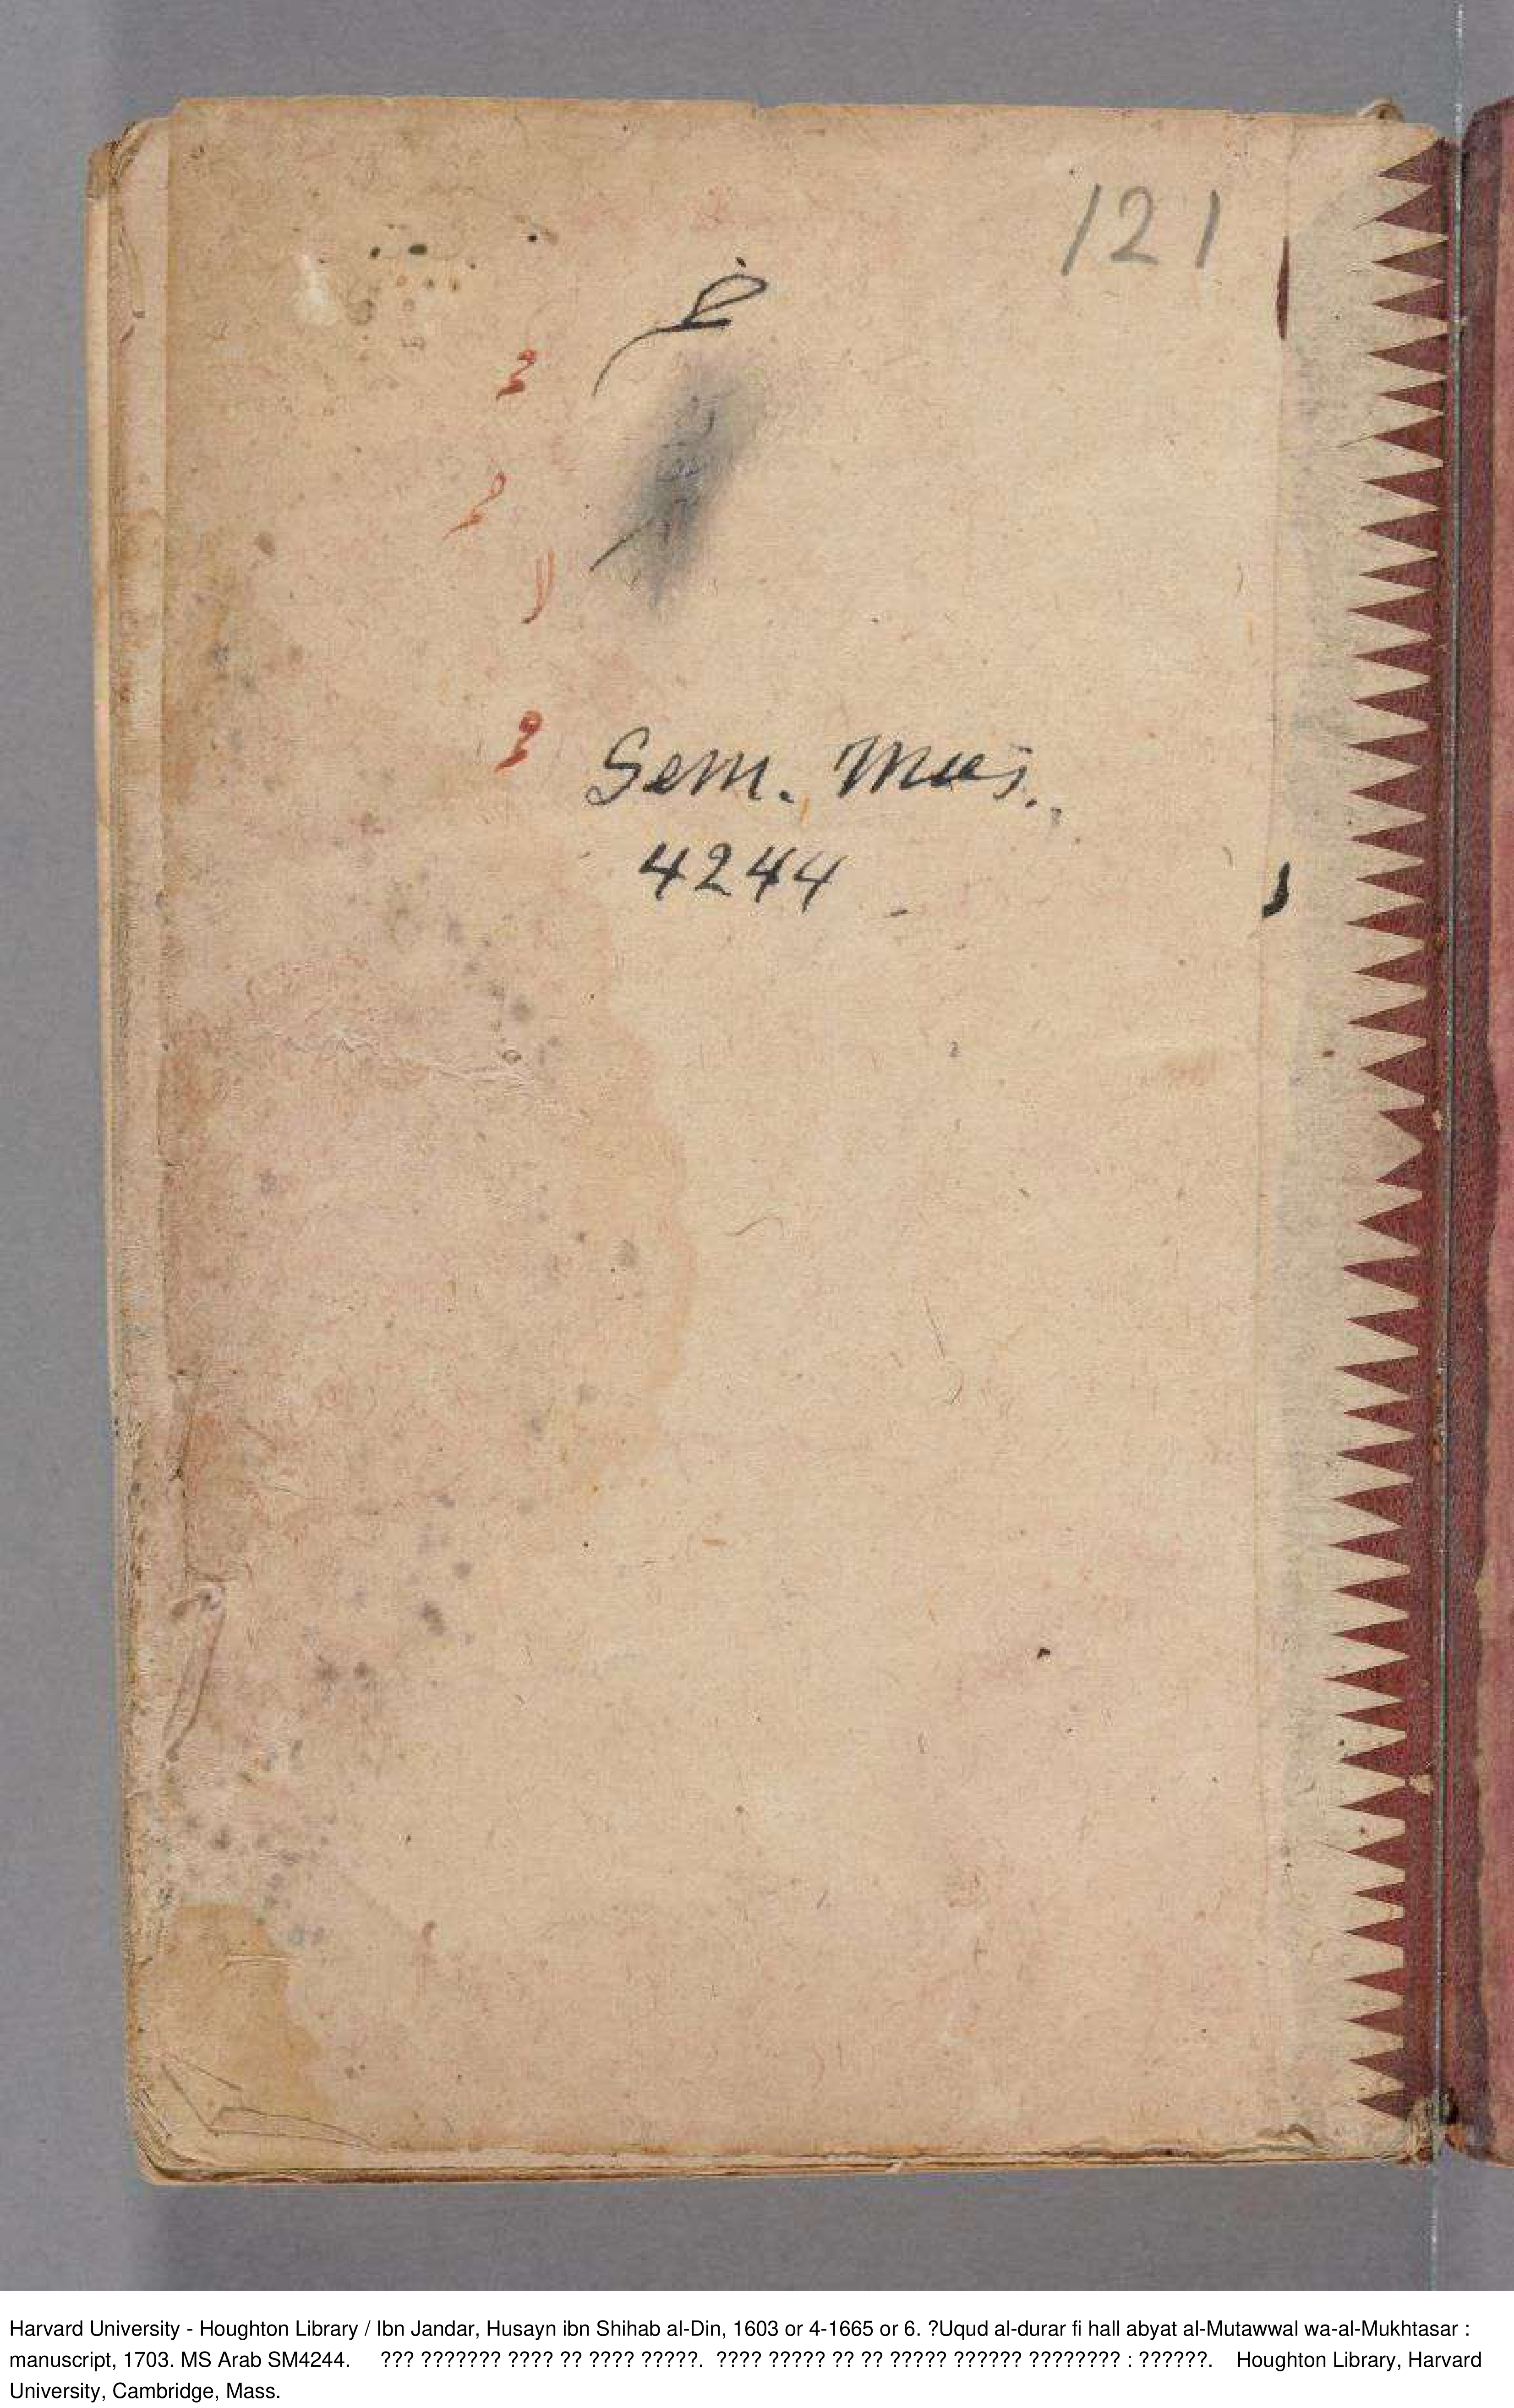 121
Sem. Mus.
4244
Harvard University - Houghton Library / Ibn Jandar, Husayn ibn Shihab al-Din, 1603 or 4-1665 or 6. ?Uqud al-durar fi hall abyat al-Mutawwal wa-al-Mukhtasar :
manuscript, 1703. MS Arab SM4244. ??? ??????? ???? ?? ???? ?????. ???? ????? ?? ?? ????? ?????? ???????? : ??????. Houghton Library, Harvard
University, Cambridge, Mass.